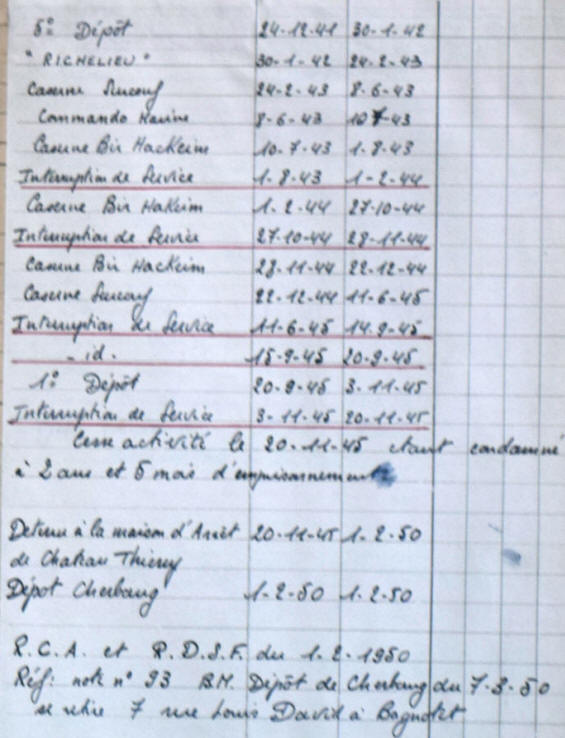 5e Dépôt 24-12-41 30-1-42
"RICHELIEU" 30-1-42 24-2-43
Caserne Surcouf 24-2-43 8-6-43
Commando Marine 8-6-43 10 7-43
Caserne Bir Hackeim 10-7-43 1-8-43
Interruption de Service 1-8-43 1-2-44
Caserne Bir Hakeim 1-2-44 27-10-44
Interruption de Service 27-10-44 28-11-44
Caserne Bir Hackeim 28-11-44 22-12-44
Caserne Surcouf 22-12-44 11-6-45
Interruption de Service 11-6-45 14.9-45
- id. 15-9-45 20-9-45
1e Dépôt 20-9-45 3-11-45
Interruption de Service 3-11-45 20-11-45
Cesse activité le 20-11-45 étant condamné
à 2 ans et 5 mois d'emprisonnement
Détenu à la maison d'Arrêt 20-11-45 1-2-50
de Chateau Thierry
Dépot Cherbourg 1-2-50 1-2-50
R.C.A. et R.D.S.F. du 1-2-1950
Réf: note n° 93 B.M. Dépôt de Cherbourg du 7-3-50
se retire 7 rue Louis David à Bagnolet